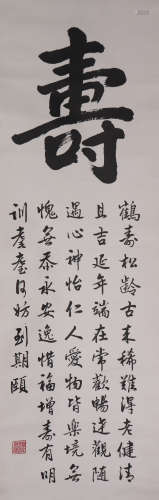 壽
鶴壽松齡古來稀難得老健清
且吉延年端在常歡暢達觀隨
遇心神怡仁人愛物皆樂境無
愧無忝永安逸惜福增壽有明
訓耄耋何妨到期頤